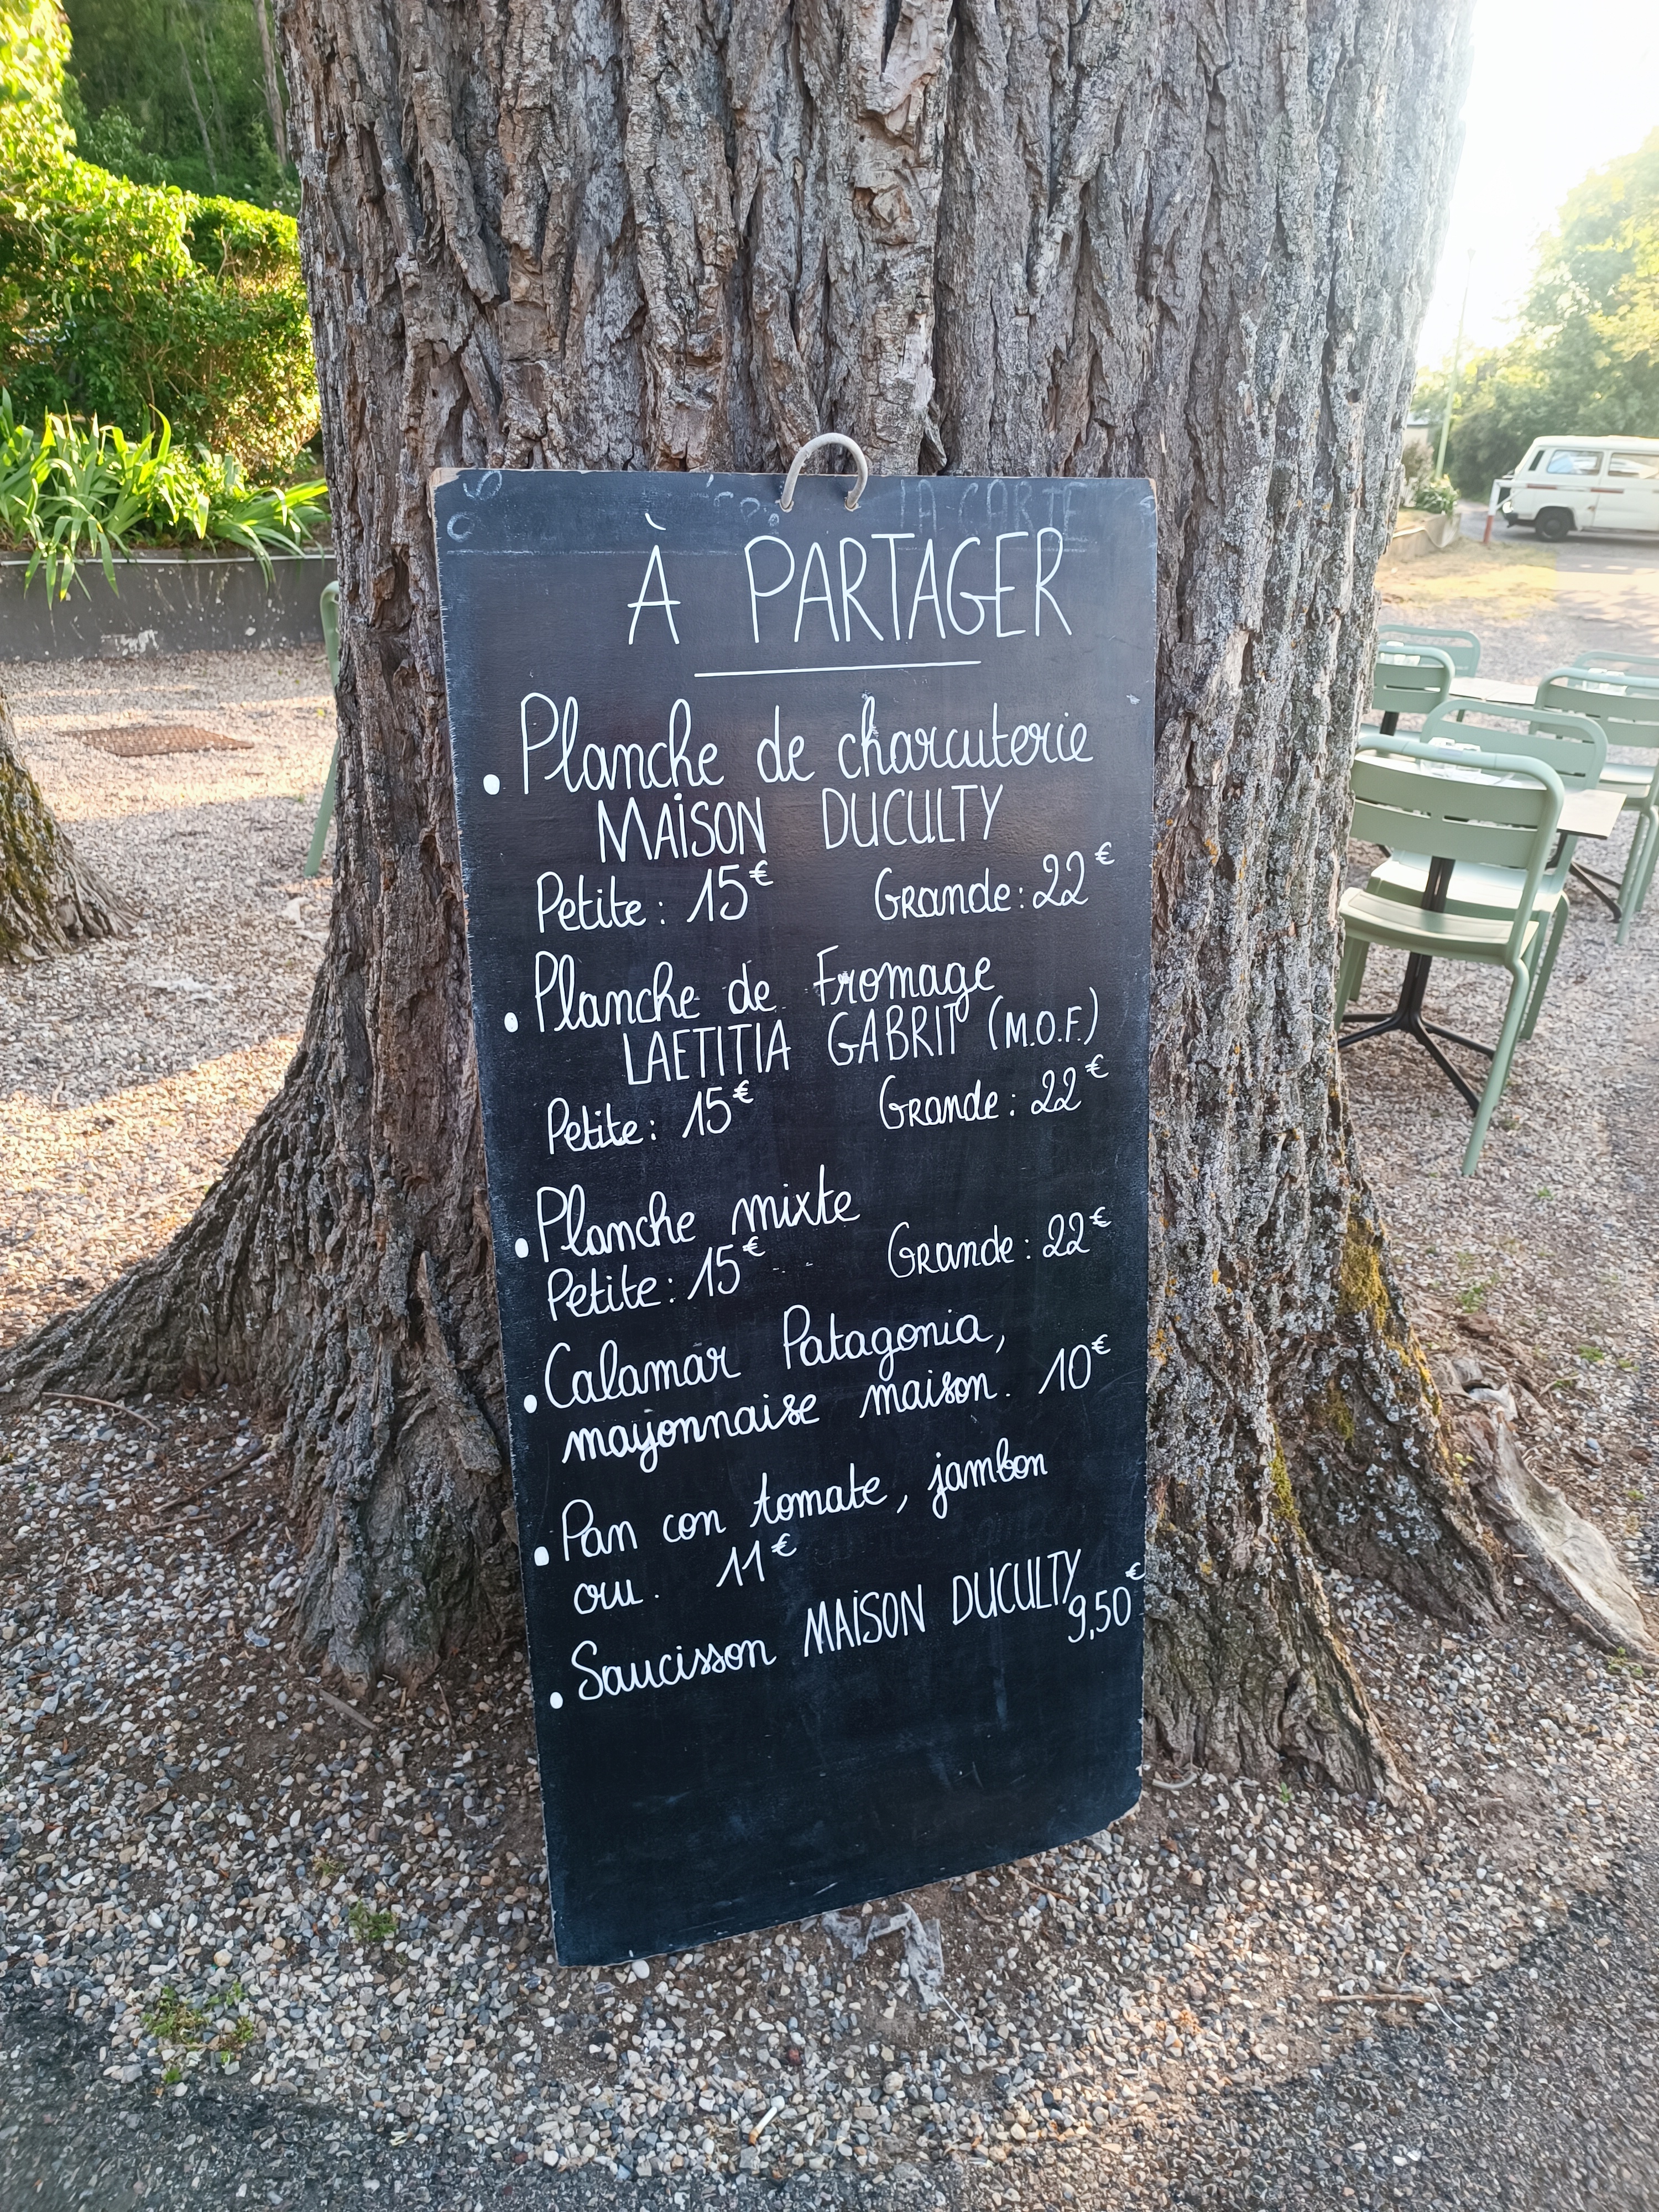 LA CARTE
À PARTAGER
• Planche de charcuterie
MAISON DUCULTY
Petite : 15€ Grande : 22€
• Planche de Fromage
LAETITIA GABRIT (M.O.F.)
Petite : 15€ Grande : 22€
• Planche mixte
Petite : 15€ Grande : 22€
• Calamar Patagonia,
mayonnaise maison. 10€
• Pan con tomate, jambon
cru. 11€
• Saucisson MAISON DUCULTY
9,50€